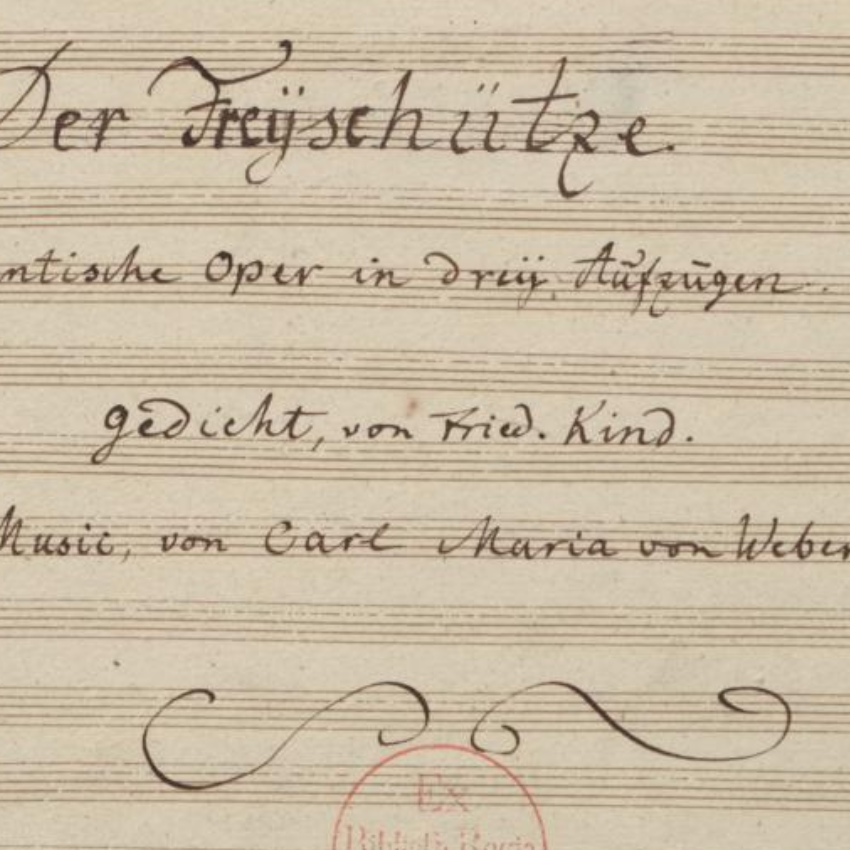 Der Freÿschütze.
ntische Oper in dreÿ Aufzügen.
gedicht, von Fried. Kind.
Music, von Carl Maria von Weber
Ex
Biblioth. Regia